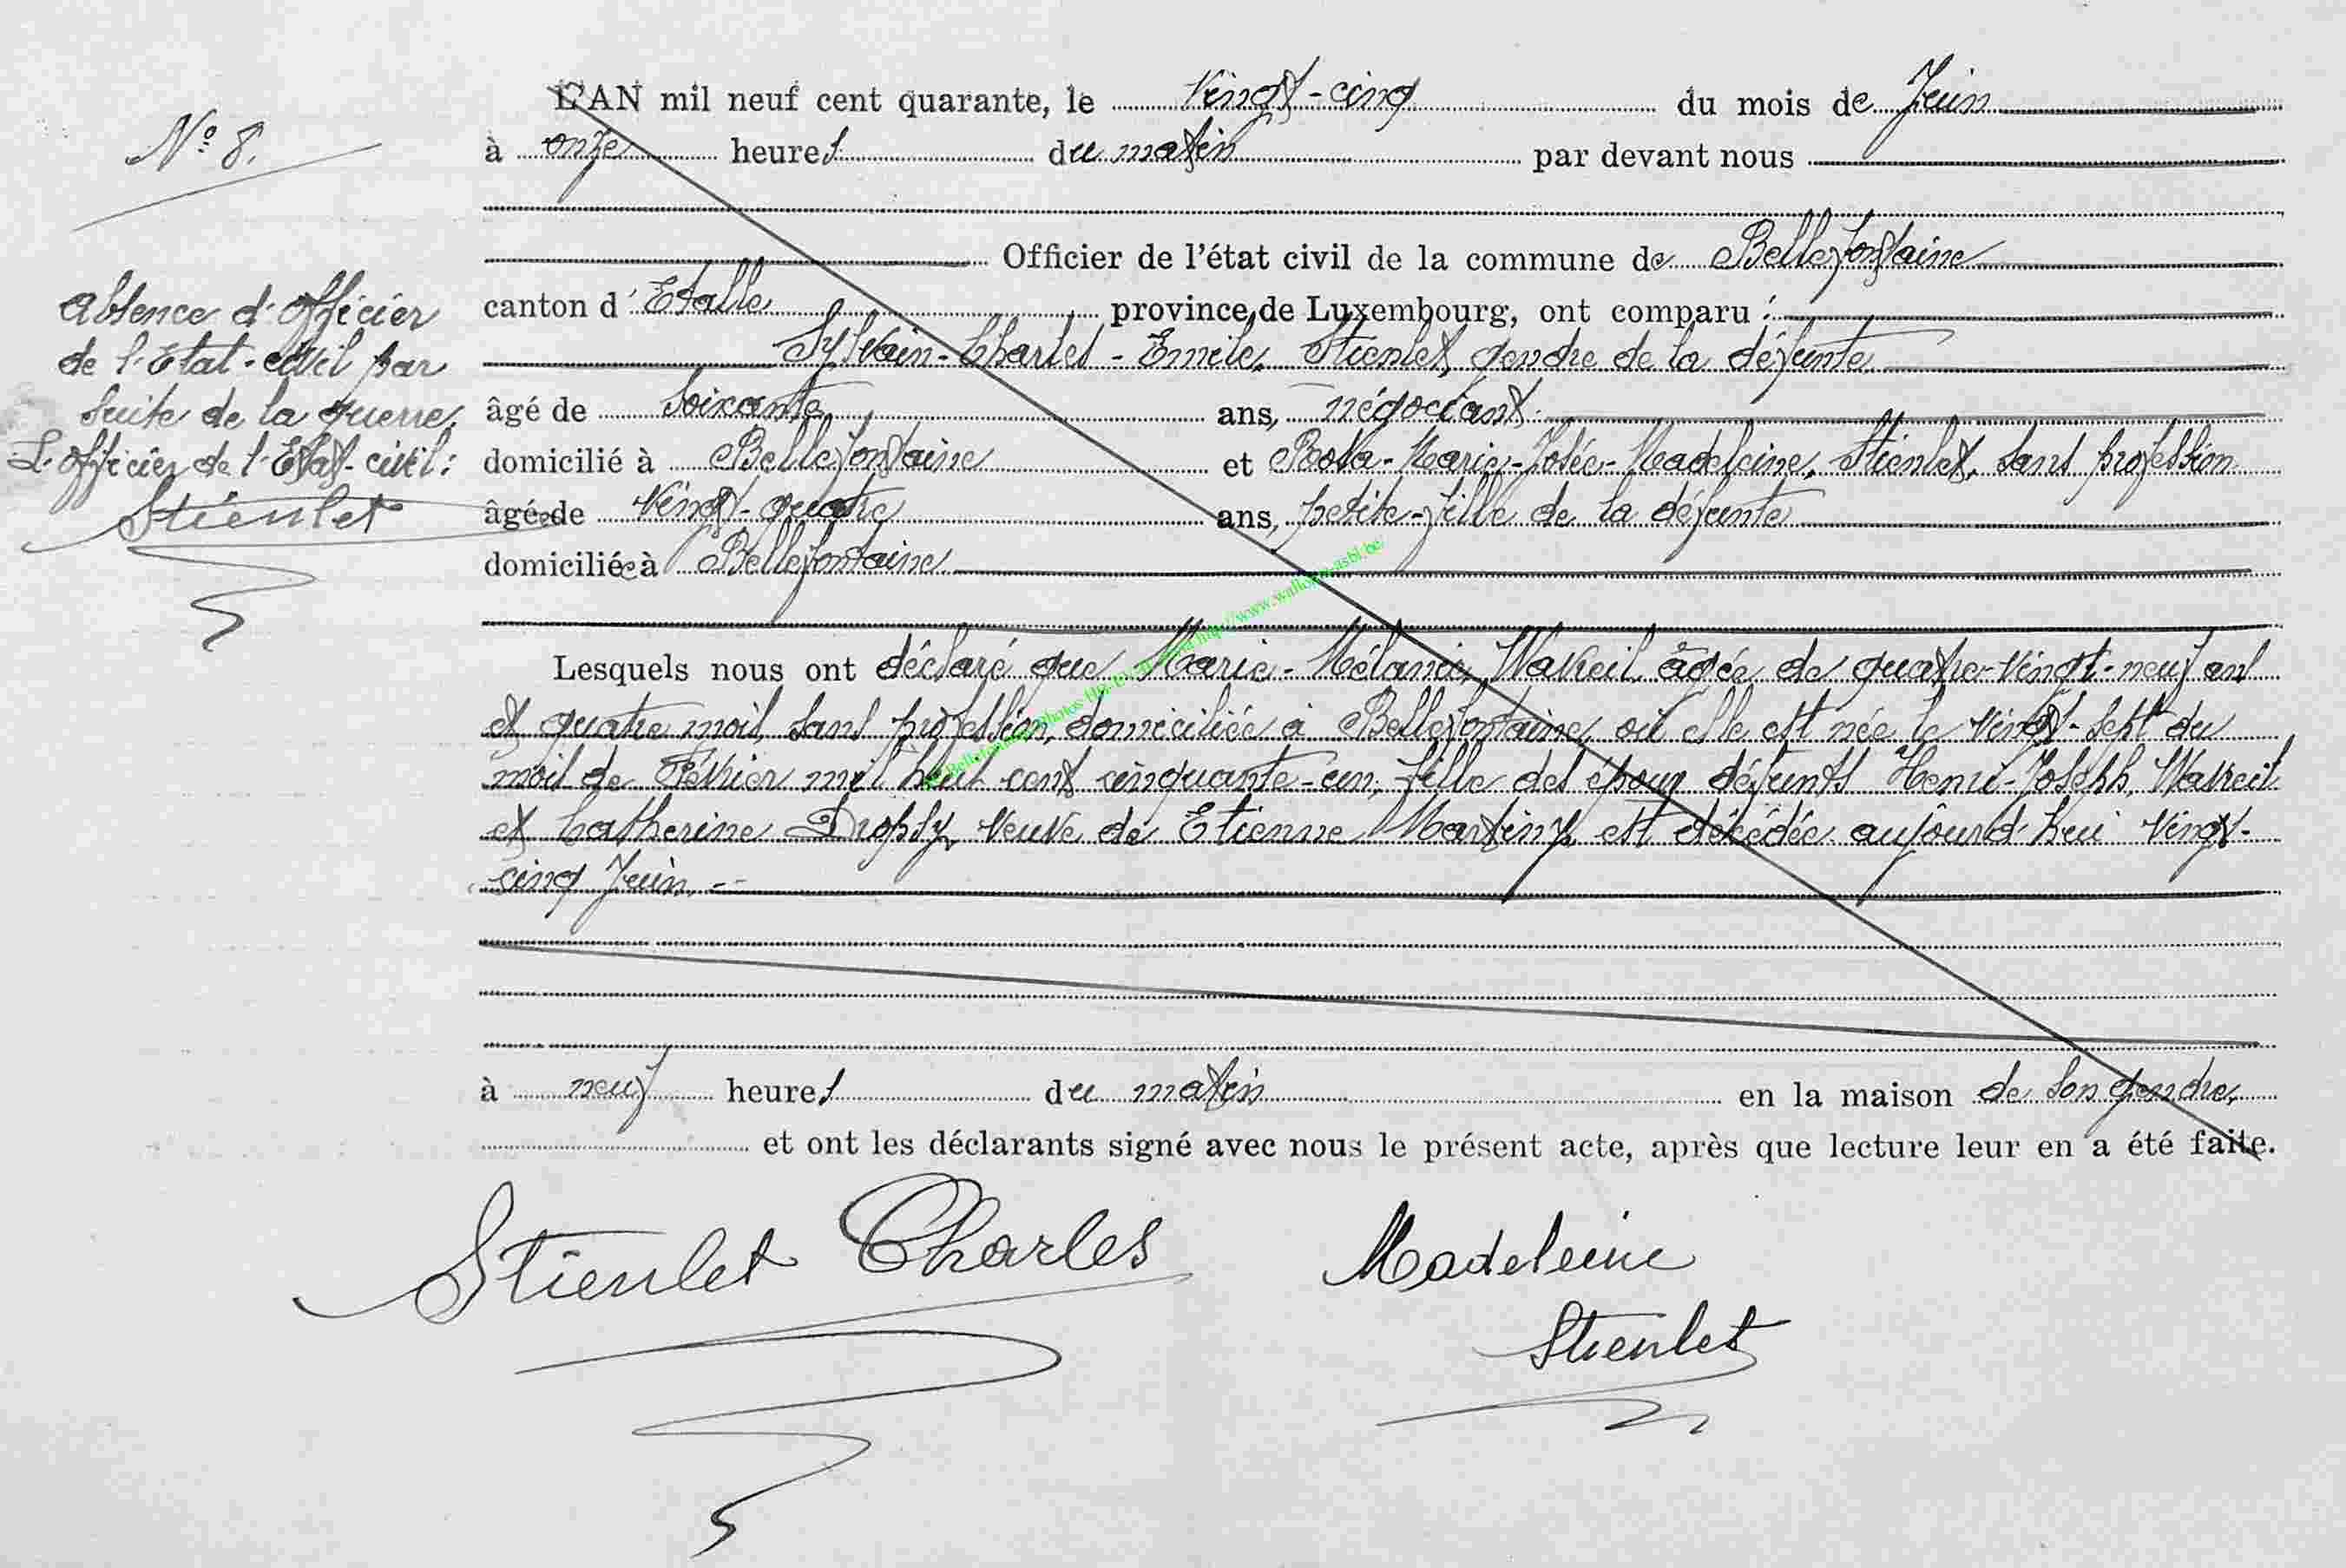 L'AN mil neuf cent quarante, le Vingt-cinq du mois de Juin
N° 8.
à onze heures du matin par devant nous
Officier de l'état civil de la commune de Bellefontaine
canton d'Etalle province de Luxembourg, ont comparu :
Sylvain-Charles-Emile, Stienlet, gendre de la défunte
âgé de soixante ans, négociant
domicilié à Bellefontaine et Rosa-Marie-Josée-Madeleine, Stienlet, sans profession
âgée de vingt-quatre ans, petite-fille de la défunte
domiciliée à Bellefontaine
Absence d'officier
de l'Etat-civil par
suite de la guerre.
L'officier de l'Etat-civil :
Stienlet
Lesquels nous ont déclaré que Marie-Mélanie, Wavreil, âgée de quatre-vingt-neuf ans
et quatre mois, sans profession, domiciliée à Bellefontaine, où elle est née le vingt-sept du
mois de Février mil huit cent cinquante-un, fille des époux défunts Henri-Joseph, Wavreil
et Catherine Dropsy, veuve de Etienne Martiny, est décédée aujourd'hui vingt-
cinq Juin. --
à neuf heures du matin en la maison de son gendre,
et ont les déclarants signé avec nous le présent acte, après que lecture leur en a été faite.
Stienlet Charles
Madeleine
Stienlet